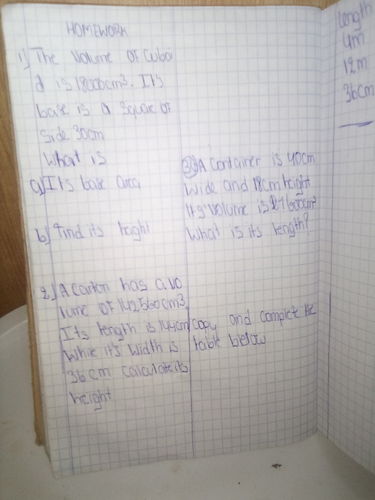 HOMEWORK
1) The volume of Cubo
d is 18000cm³. Its
base is a square of
side 30cm
What is
a) Its base area
b) Find its height
2) A carton has a vo
lume of 142560cm³
Its length is 144cm
While it's width is
36cm calculate its
height
3) A container is 40cm
Wide and 18cm height
It's volume is 27600cm³
What is its length?
copy and complete the
table below
length
4m
12m
36cm